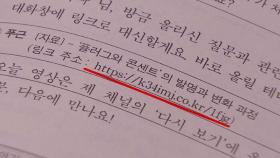 님, 방금 올리신 질문과 관련
대화창에 링크로 대신할게요. 바로 올릴 테
푸근 (자료) - '플러그와 콘센트'의 발명과 변화 과정
(링크 주소: https://k34imj.co.kr/1fgj)
오늘 영상은 제 채널의 '다시 보기'에
분, 다음에 만나요!